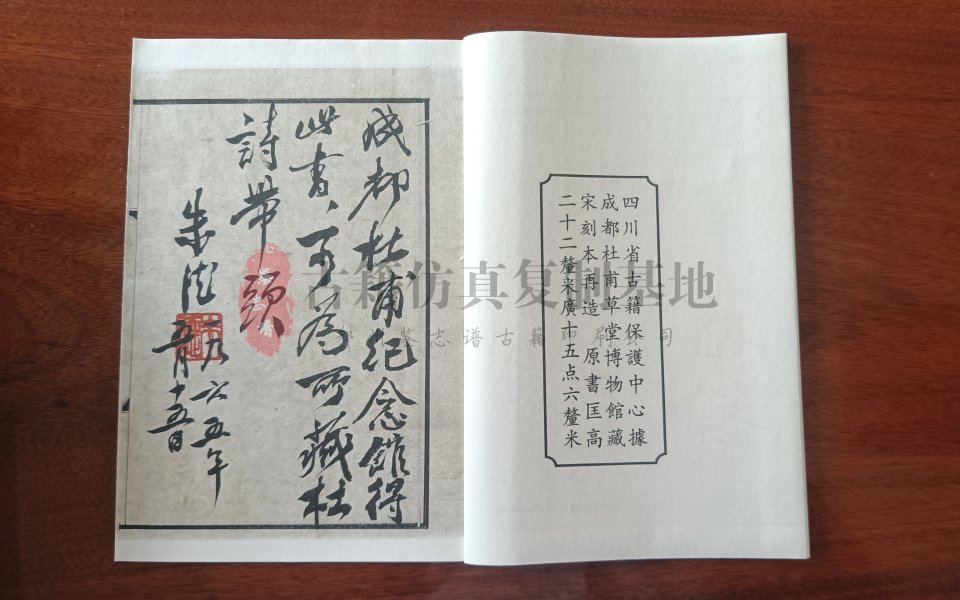 四川省古籍保護中心據
成都杜甫草堂博物館藏
宋刻本再造 原書匡高
二十二釐米廣十五点六釐米
成都杜甫纪念館得
此書、可為所藏杜
詩帶頭
朱德
一九六五年
五月十五日
古籍仿真复制基地
志谱古籍印刷 司